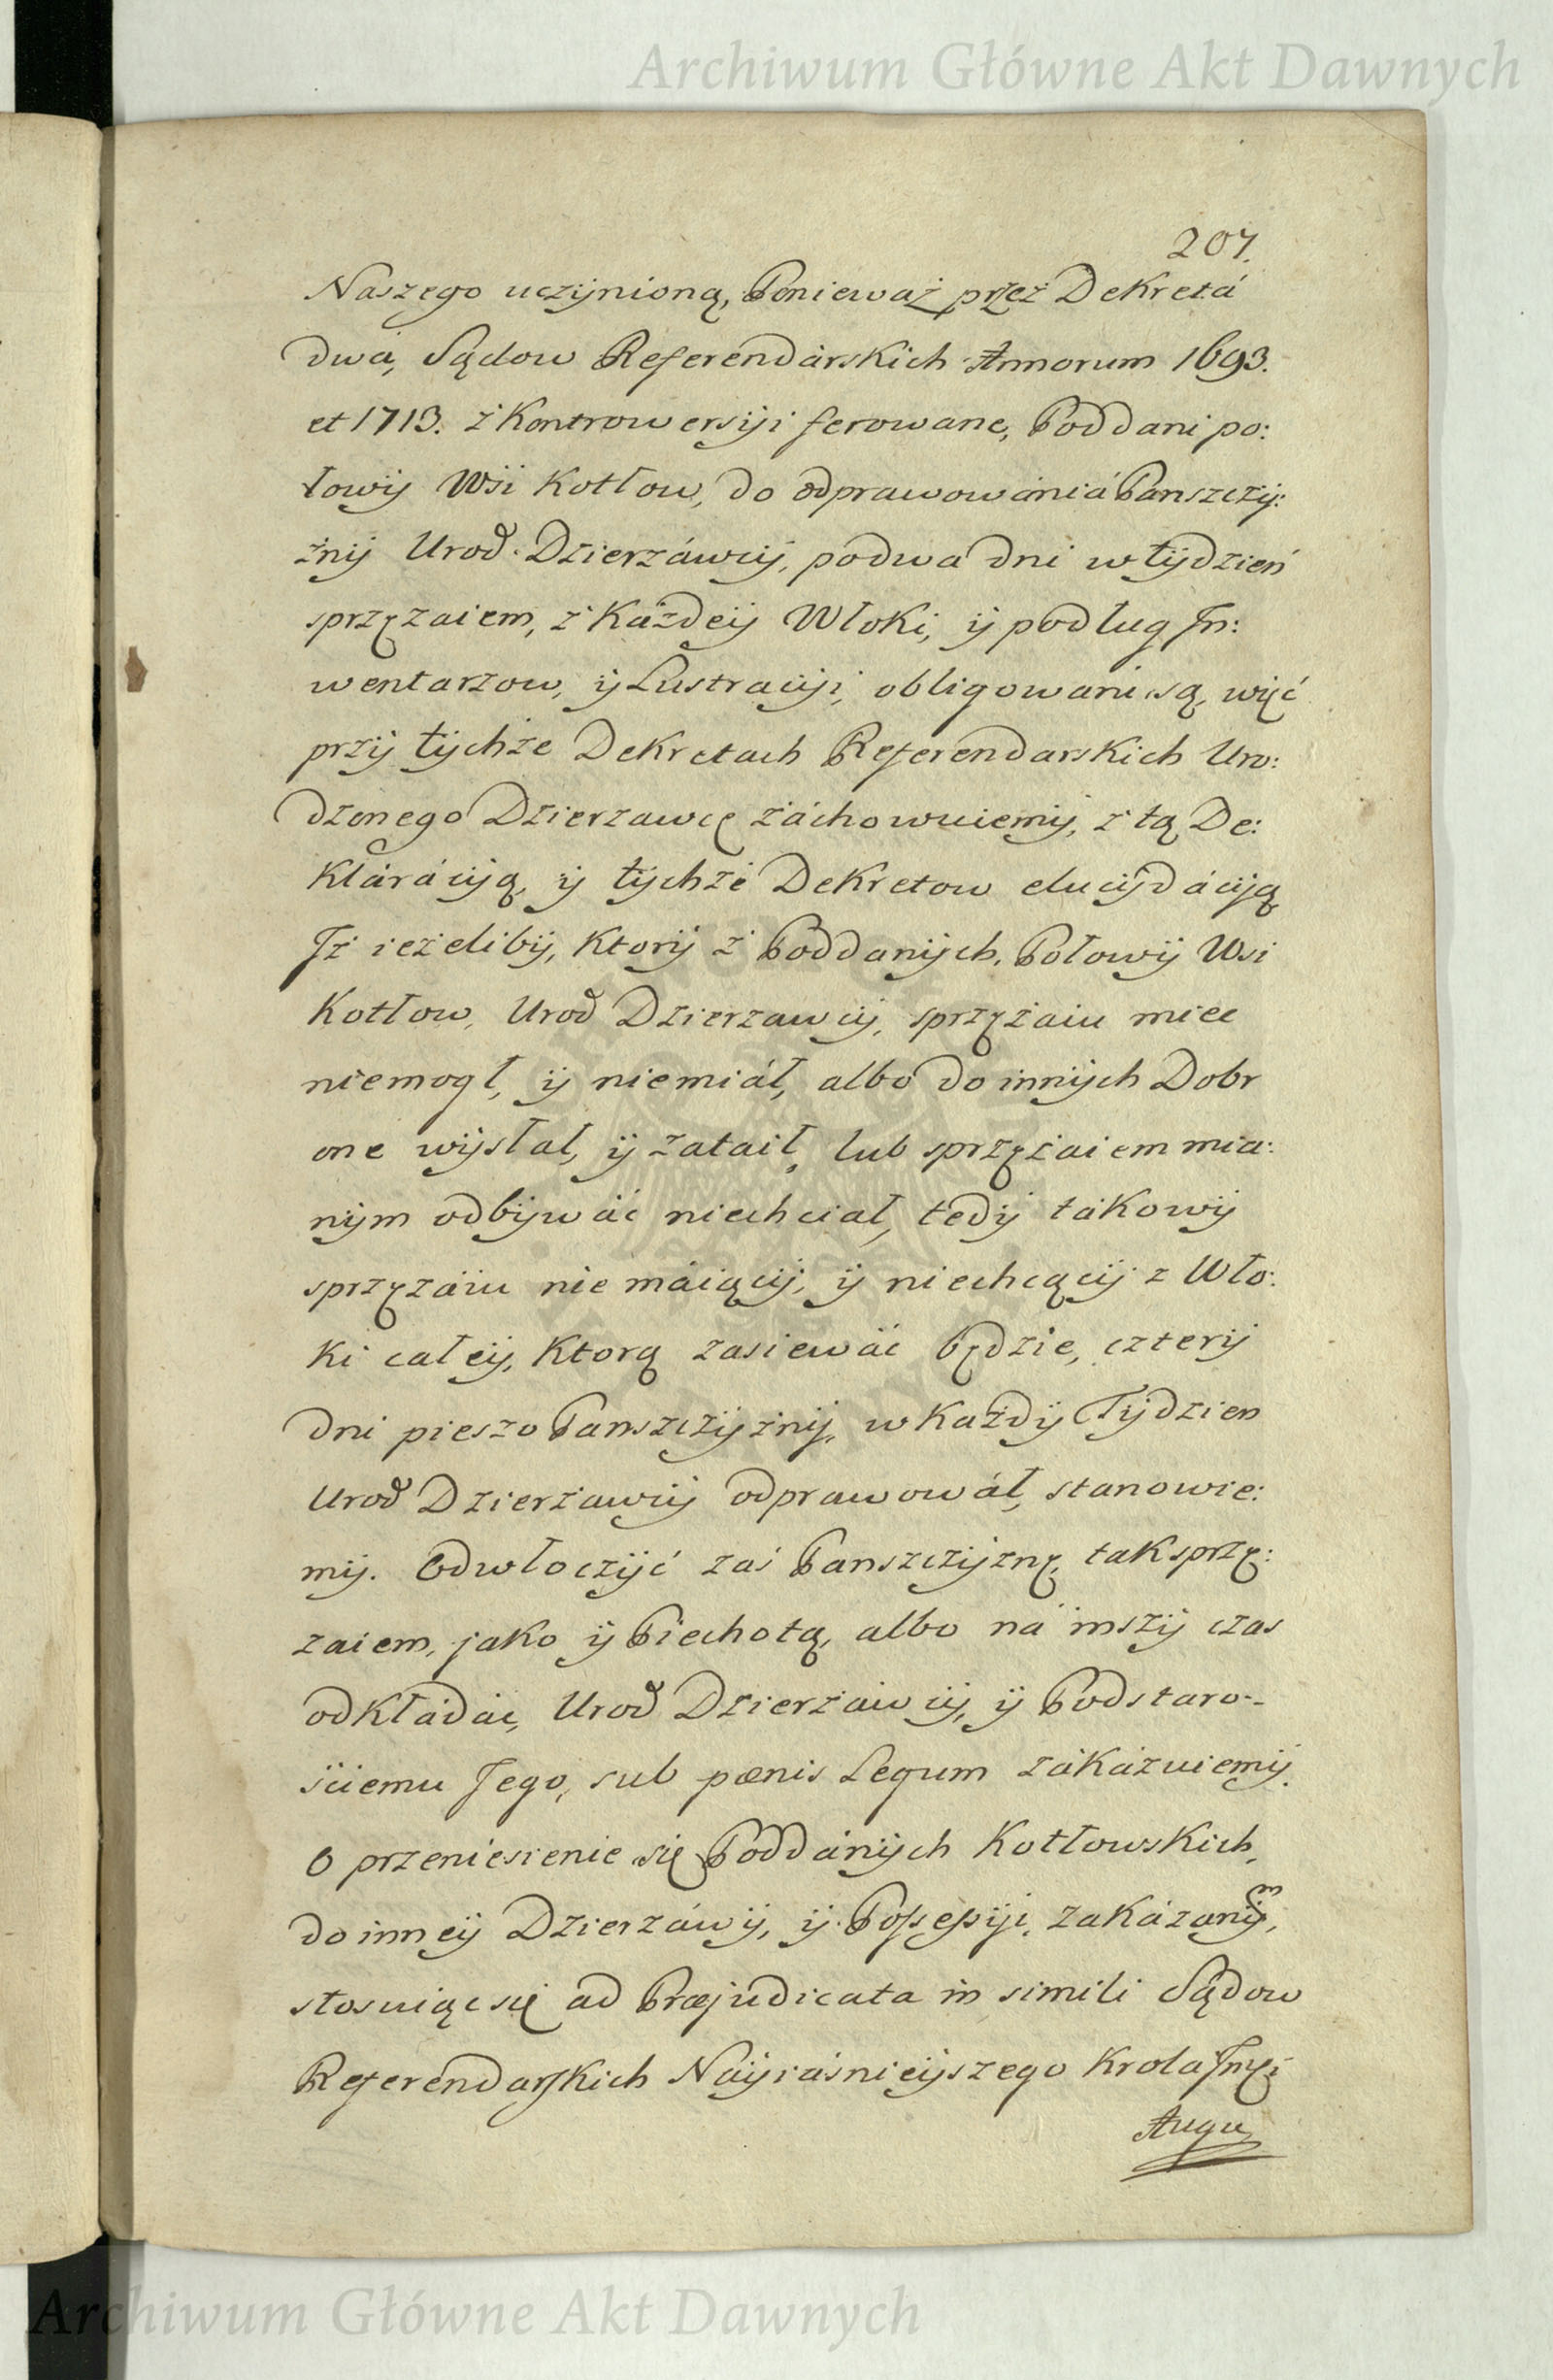 Archiwum Główne Akt Dawnych
207.
Naszego uczÿnioną, Ponieważ przez Dekretá
dwa, Sądow Referendárskich Annorum 1693.
et 1713. z Kontrowersÿi ferowane, Poddani po:
łowÿ Wsi Kotłow, do odprawowániá Panszczÿ:
żnÿ Urod. Dzierzáwcÿ, podwa dni w tÿdzień
sprzęzaiem, z Każdeÿ Włoki, ÿ podług In:
wentarzow, ÿ Lustracÿi, obligowani są, więć
przÿ tÿchże Dekretach Referendarskich Uro:
dzonego Dzierzawcę záchowuiemÿ, z tą De:
Klárácÿą, ÿ tÿchże Dekretow elucÿdácÿą
Iż ieżelibÿ, Ktorÿ z Poddanÿch, Połowÿ Wsi
Kotłow, Urod Dzierzawcÿ, sprzężaiu miec
niemogł, ÿ niemiáł, albo do innÿch Dobr
one wÿsłał, ÿ zataił, lub sprzężaiem mia:
nÿm odbÿwáć niechciał, tedÿ tákowÿ
sprzęzáiu nie máiącÿ, ÿ niechcącÿ z Wło:
Ki całeÿ, Ktorą zasiewáć będzie, czterÿ
dni pieszo Panszczÿżnÿ, w Każdÿ Tÿdzien
Urod Dzierżawcÿ odprawowáł, stanowie:
mÿ. Odwłoczÿć zaś Panszczÿznę, tak sprzę:
zaiem, jako ÿ Piechotą, albo ná inszÿ czas
odKładáć, Urod Dzierżáwcÿ, ÿ Podstaro:-
ściemu Jego, sub pœnis Legum zákázuiemÿ.
O przeniesienie się Poddánÿch Kotłowskich,
do inneÿ Dzierzáwÿ, ÿ Possessÿi, zakázanÿm,
stosuiąc się ad Præjudicata in simili Sądow
Referendarskich Naÿiaśnieÿszego Krola Jmci
Augu
Archiwum Główne Akt Dawnych